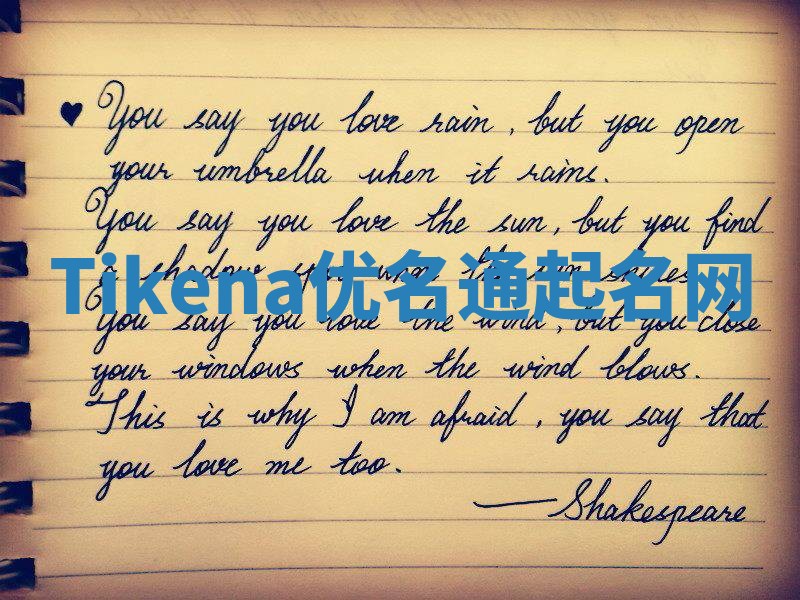 ♥ You say you love rain, but you open
your umbrella when it rains.
You say you love the sun, but you find
a shadow spot when the sun shines.
Tikena优名通起名网
You say you love the wind, but you close
your windows when the wind blows.
This is why I am afraid, you say that
you love me too.
—Shakespeare